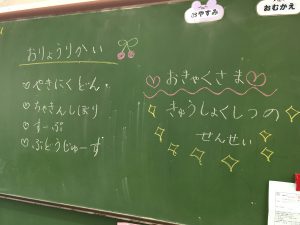 おやすみ
おむかえ
おりょうりかい
♡やきにくどん
♡ちゃきんしぼり
♡すーぷ
♡ぶどうじゅーす
♡おきゃくさま♡
きゅうしょくしつの
せんせい